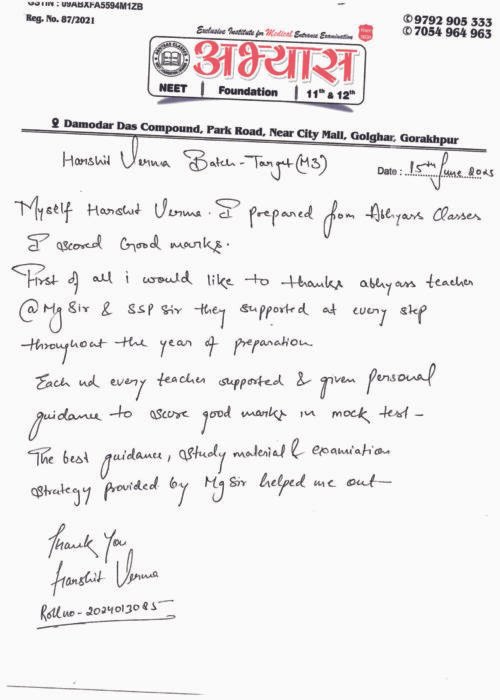 GSTIN : 09ABXFA5594M1ZB
Reg. No. 87/2021
✆ 9792 905 333
✆ 7054 964 963
Exclusive Institute for Medical Entrance Examination
अभ्यास
NEET | Foundation | 11th & 12th
Damodar Das Compound, Park Road, Near City Mall, Golghar, Gorakhpur
Harshit Verma Batch - Target (M3)
Date : 15th June 2025
Myself Harshit Verma. I prepared from Abhyas Classes
I scored Good marks.
First of all i would like to thanks abhyas teacher
@ Mg Sir & SSP Sir they supported at every step
throughout the year of preparation
Each nd every teacher supported & given Personal
guidance to score good marks in mock test -
The best guidance, study material & examiation
strategy provided by Mg Sir helped me out -
Thank You
Harshit Verma
Roll no - 2024013085